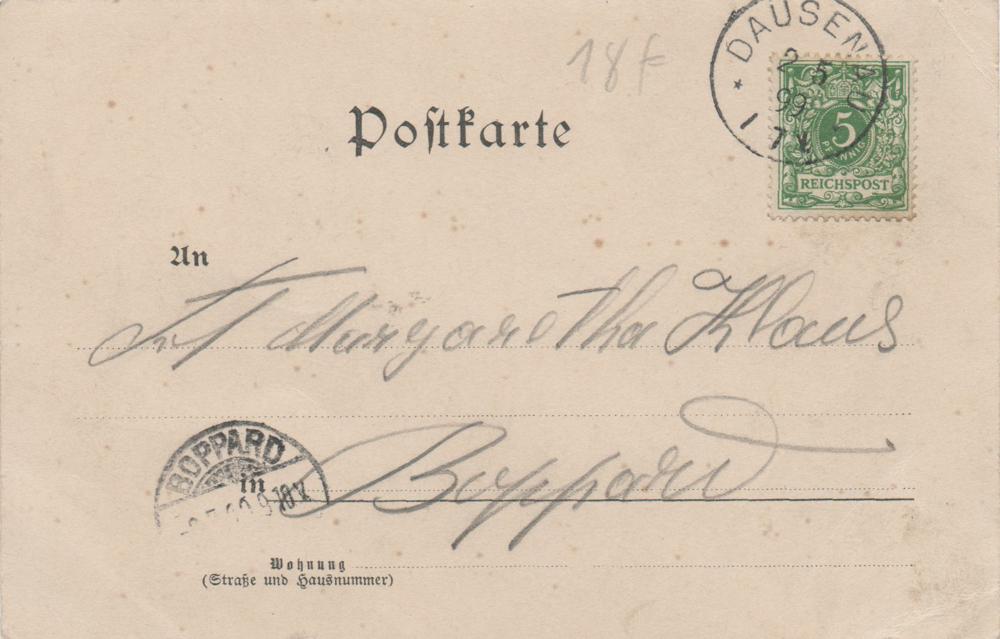 18 f
DAUSENAU
2 5
99
1 - 7 N
5
PFENNIG
REICHSPOST
Postkarte
An
Frl Margaretha Klaus
BOPPARD
9-10 V
in Boppard
Wohnung
(Straße und Hausnummer)